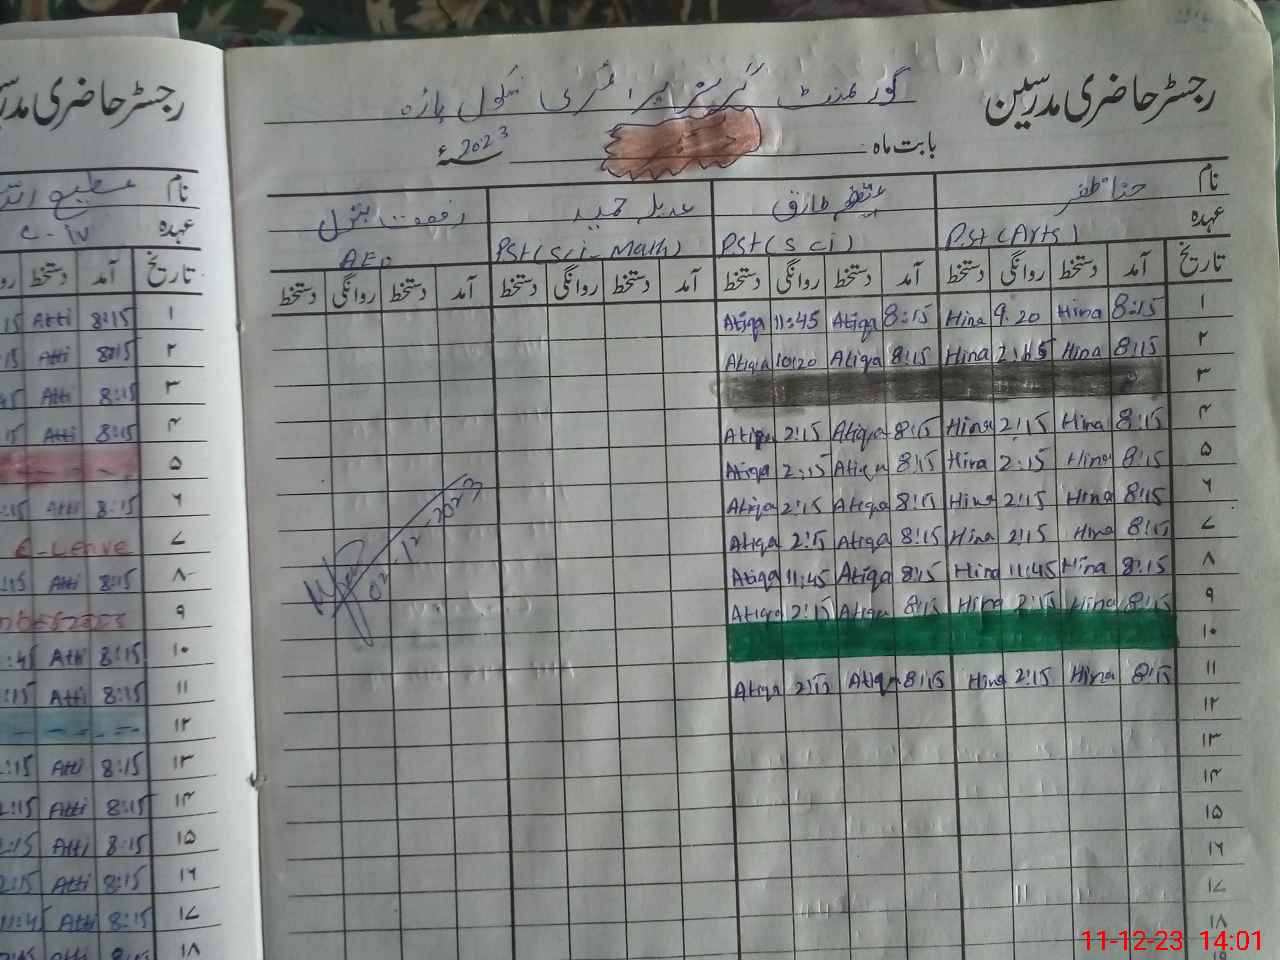 رجسٹر حاضری مدرسین
گورنمنٹ گرلز پرائمری سکول ہاڑہ
بابت ماہ 2023ء
نام حنا ظفر عتیقہ طارق عدیلہ حمید رفعت بتول
عہدہ Pst (Arts) Pst (Sci) Pst (Sci-Math) AEO
تاریخ آمد دستخط روانگی دستخط آمد دستخط روانگی دستخط آمد دستخط روانگی دستخط آمد دستخط روانگی دستخط
۱ 8:15 Hina 9:20 Hina 8:15 Atiqa 11:45 Atiqa
۲ 8:15 Hina Hina 8:15 Atiqa 10:20 Atiqa
۳
۴ 8:15 Hina 2:15 Hina 8:15 Atiqa 2:15 Atiqa
۵ 8:15 Hina 2:15 Hina 8:15 Atiqa 2:15 Atiqa
۶ 8:15 Hina 2:15 Hina 8:15 Atiqa 2:15 Atiqa
۷ 8:15 Hina 2:15 Hina 8:15 Atiqa 2:15 Atiqa
۸ 8:15 Hina 11:45 Hina 8:15 Atiqa 11:45 Atiqa
۹ 8:15 Hina 2:15 Hina 8:15 Atiqa 2:15 Atiqa
۱۰
۱۱ 8:15 Hina 2:15 Hina 8:15 Atiqa 2:15 Atiqa
۱۲
۱۳
۱۴
۱۵
۱۶
۱۷
۱۸
02-12-2023
رجسٹر حاضری
نام
عہدہ C-IV
تاریخ آمد دستخط
۱ 8:15 Atti
۲ 8:15 Atti
۳ 8:15 Atti
۴ 8:15 Atti
۵
۶ 8:15 Atti
۷ C-Leave
۸ 8:15 Atti
۹
۱۰ 8:15 Atti
۱۱ 8:15 Atti
۱۲
۱۳ 8:15 Atti
۱۴ 8:15 Atti
۱۵ 8:15 Atti
۱۶ 8:15 Atti
۱۷ 8:15 Atti
۱۸
11-12-23 14:01